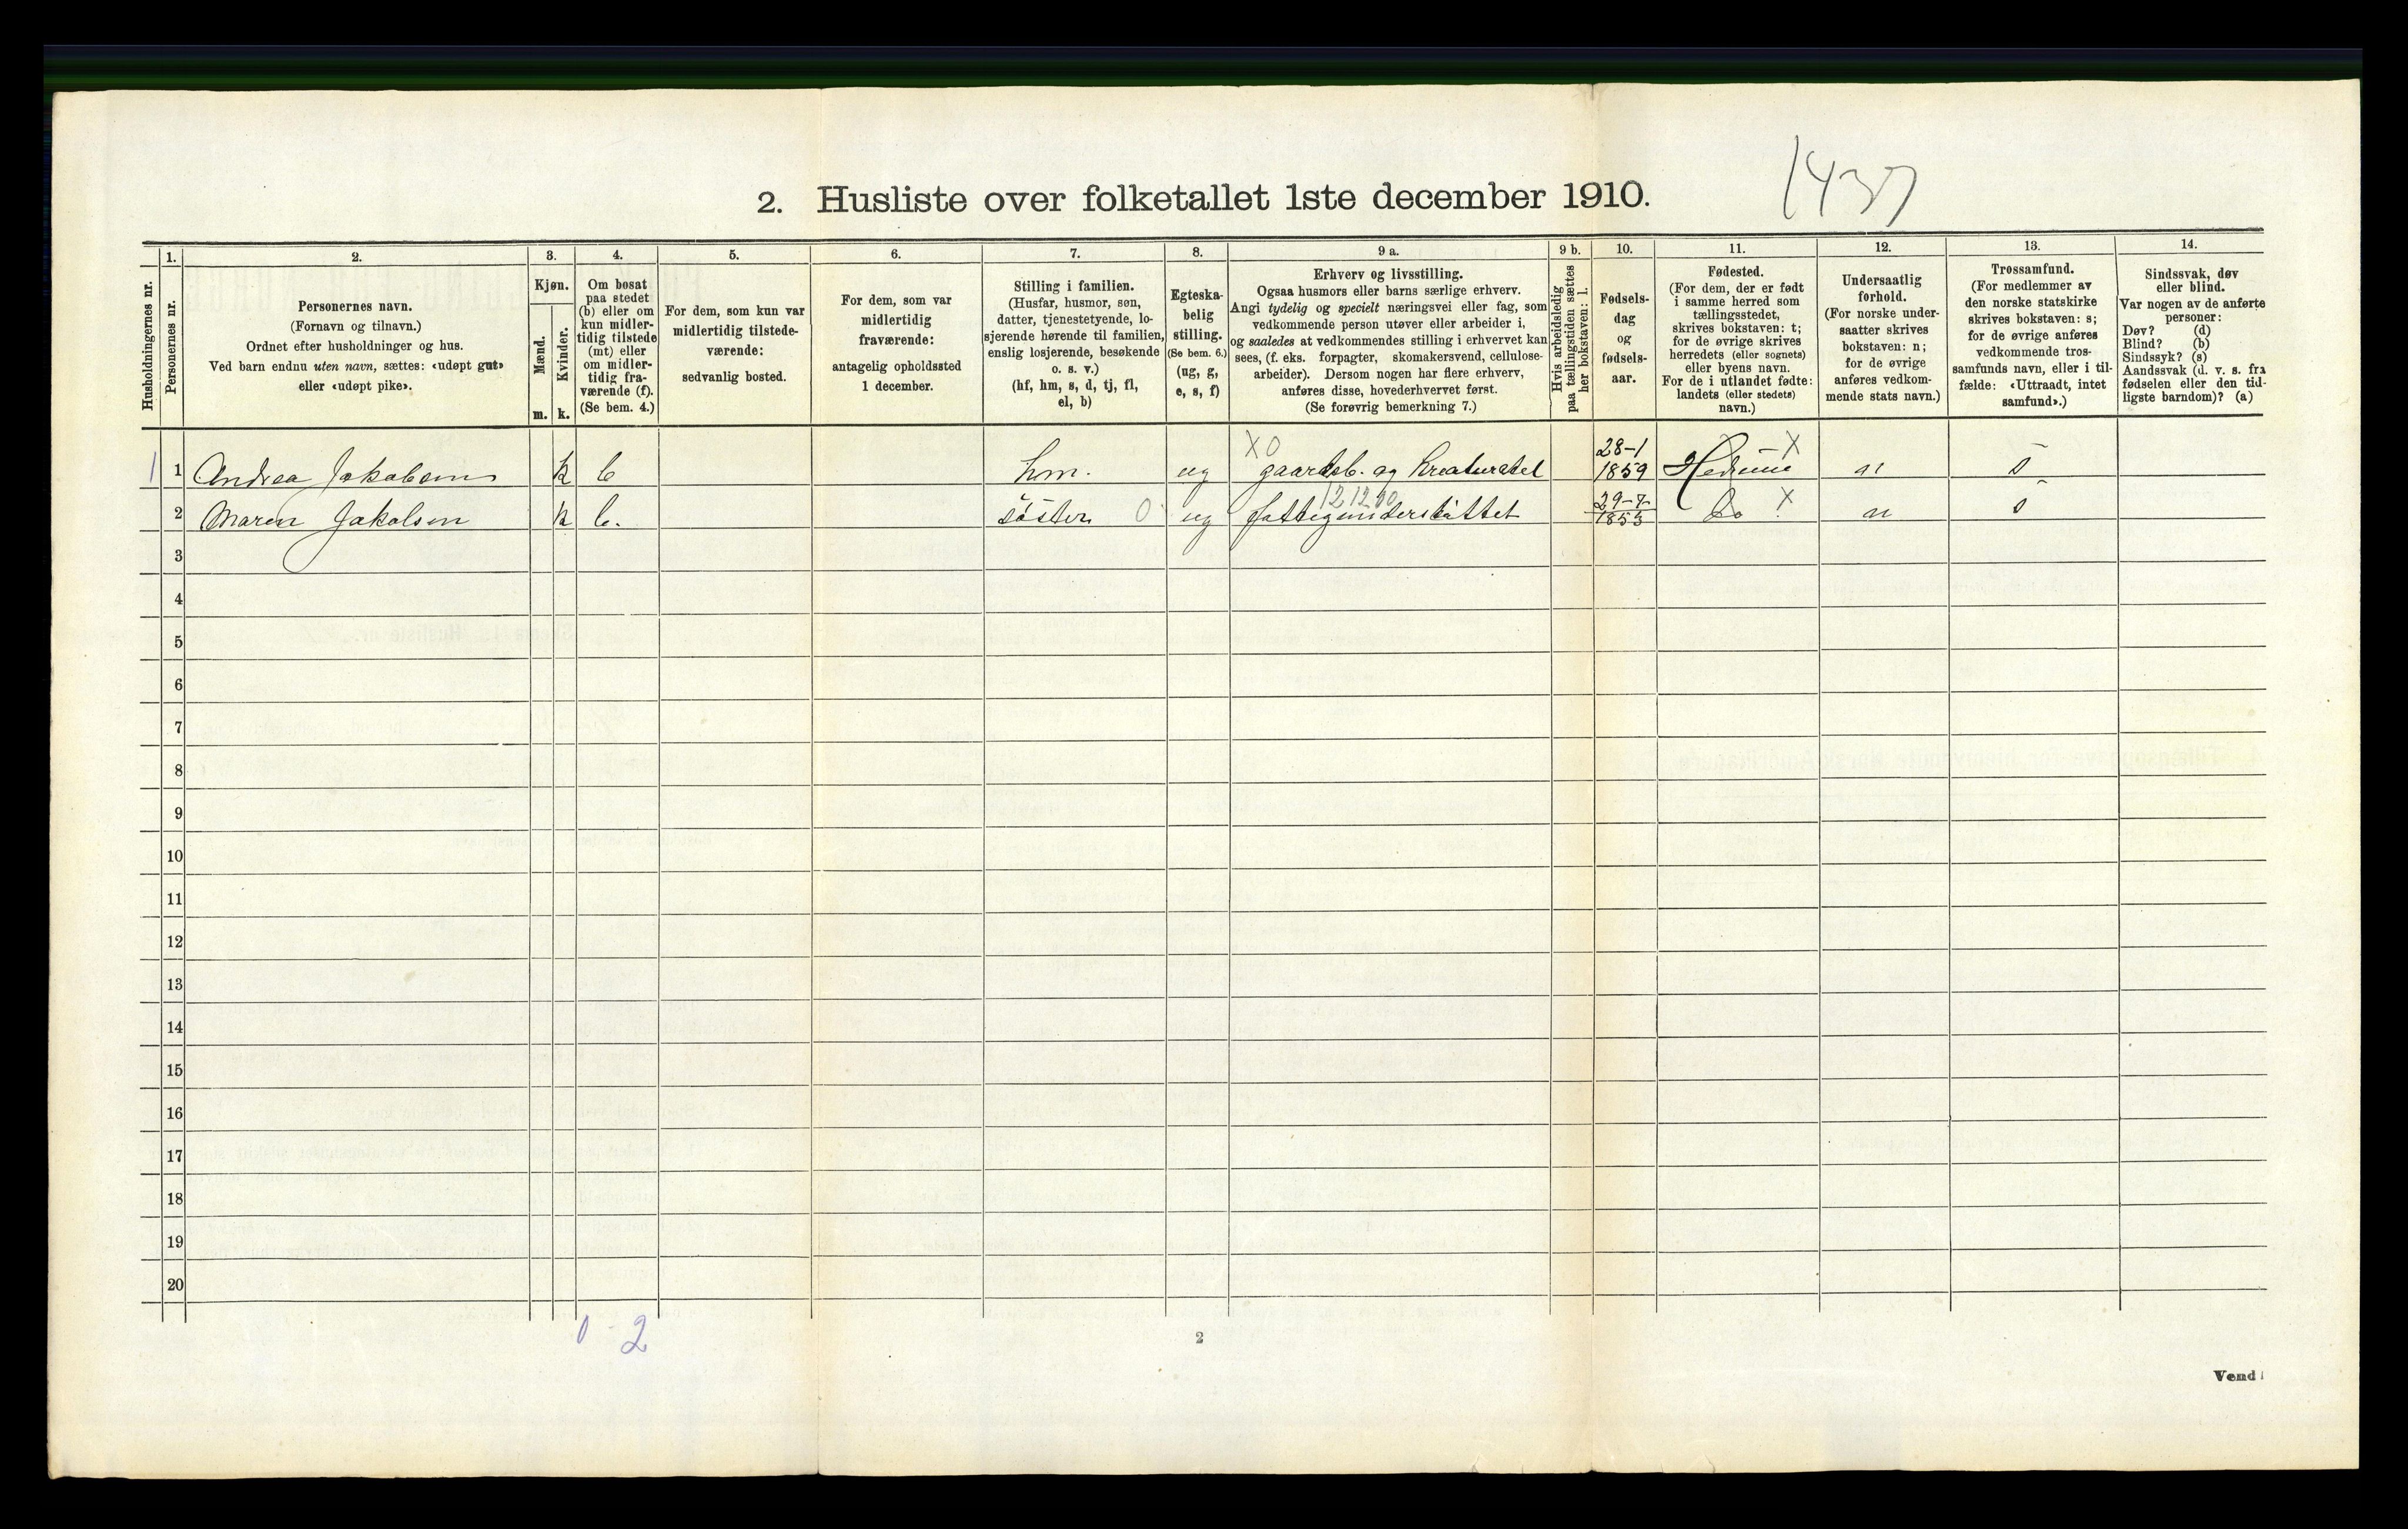 1437
2. Husliste over folketallet 1ste december 1910.
Husholdningernes nr.
1.
Personernes nr.
2.
Personernes navn.
(Fornavn og tilnavn.)
Ordnet efter husholdninger og hus.
Ved barn endnu uten navn, sættes: «udøpt gut»
eller «udøpt pike».
3.
Kjøn.
Mænd.
Kvinder.
m. k.
4.
Om bosat
paa stedet
(b) eller om
kun midler-
tidig tilstede
(mt) eller
om midler-
tidig fra-
værende (f).
(Se bem. 4.)
5.
For dem, som kun var
midlertidig tilstede-
værende:
sedvanlig bosted.
6.
For dem, som var
midlertidig
fraværende:
antagelig opholdssted
1 december.
7.
Stilling i familien.
(Husfar, husmor, søn,
datter, tjenestetyende, lo-
sjerende hørende til familien,
enslig losjerende, besøkende
o. s. v.)
(hf, hm, s, d, tj, fl,
el, b)
8.
Egteska-
belig
stilling.
(Se bem. 6.)
(ug, g,
e, s, f)
9 a.
Erhverv og livsstilling.
Ogsaa husmors eller barns særlige erhverv.
Angi tydelig og specielt næringsvei eller fag, som
vedkommende person utøver eller arbeider i,
og saaledes at vedkommendes stilling i erhvervet kan
sees, (f. eks. forpagter, skomakersvend, cellulose-
arbeider). Dersom nogen har flere erhverv,
anføres disse, hovederhvervet først.
(Se forøvrig bemerkning 7.)
9 b.
Hvis arbeidsledig
paa tællingstiden sættes
her bokstaven: l.
10.
Fødsels-
dag
og
fødsels-
aar.
11.
Fødested.
(For dem, der er født
i samme herred som
tællingsstedet,
skrives bokstaven: t;
for de øvrige skrives
herredets (eller sognets)
eller byens navn.
For de i utlandet fødte:
landets (eller stedets)
navn.)
12.
Undersaatlig
forhold.
(For norske under-
saatter skrives
bokstaven: n;
for de øvrige
anføres vedkom-
mende stats navn.)
13.
Trossamfund.
(For medlemmer av
den norske statskirke
skrives bokstaven: s;
for de øvrige anføres
vedkommende tros-
samfunds navn, eller i til-
fælde: «Uttraadt, intet
samfund».)
14.
Sindssvak, døv
eller blind.
Var nogen av de anførte
personer:
Døv? (d)
Blind? (b)
Sindssyk? (s)
Aandssvak (d. v. s. fra
fødselen eller den tid-
ligste barndom)? (a)
X 0 28-1 X
1 1 Andrea Jakobsen k b hm. ug gaardsb. og Kreaturstel 1859 Hedrum n s
12 12 00 29-7 X
2 Maren Jakobsen k b. søster 0 ug fattigunderstøttet 1853 Do n s
3
4
5
6
7
8
9
10
11
12
13
14
15
16
17
18
19
20
0 - 2
2
Vend!